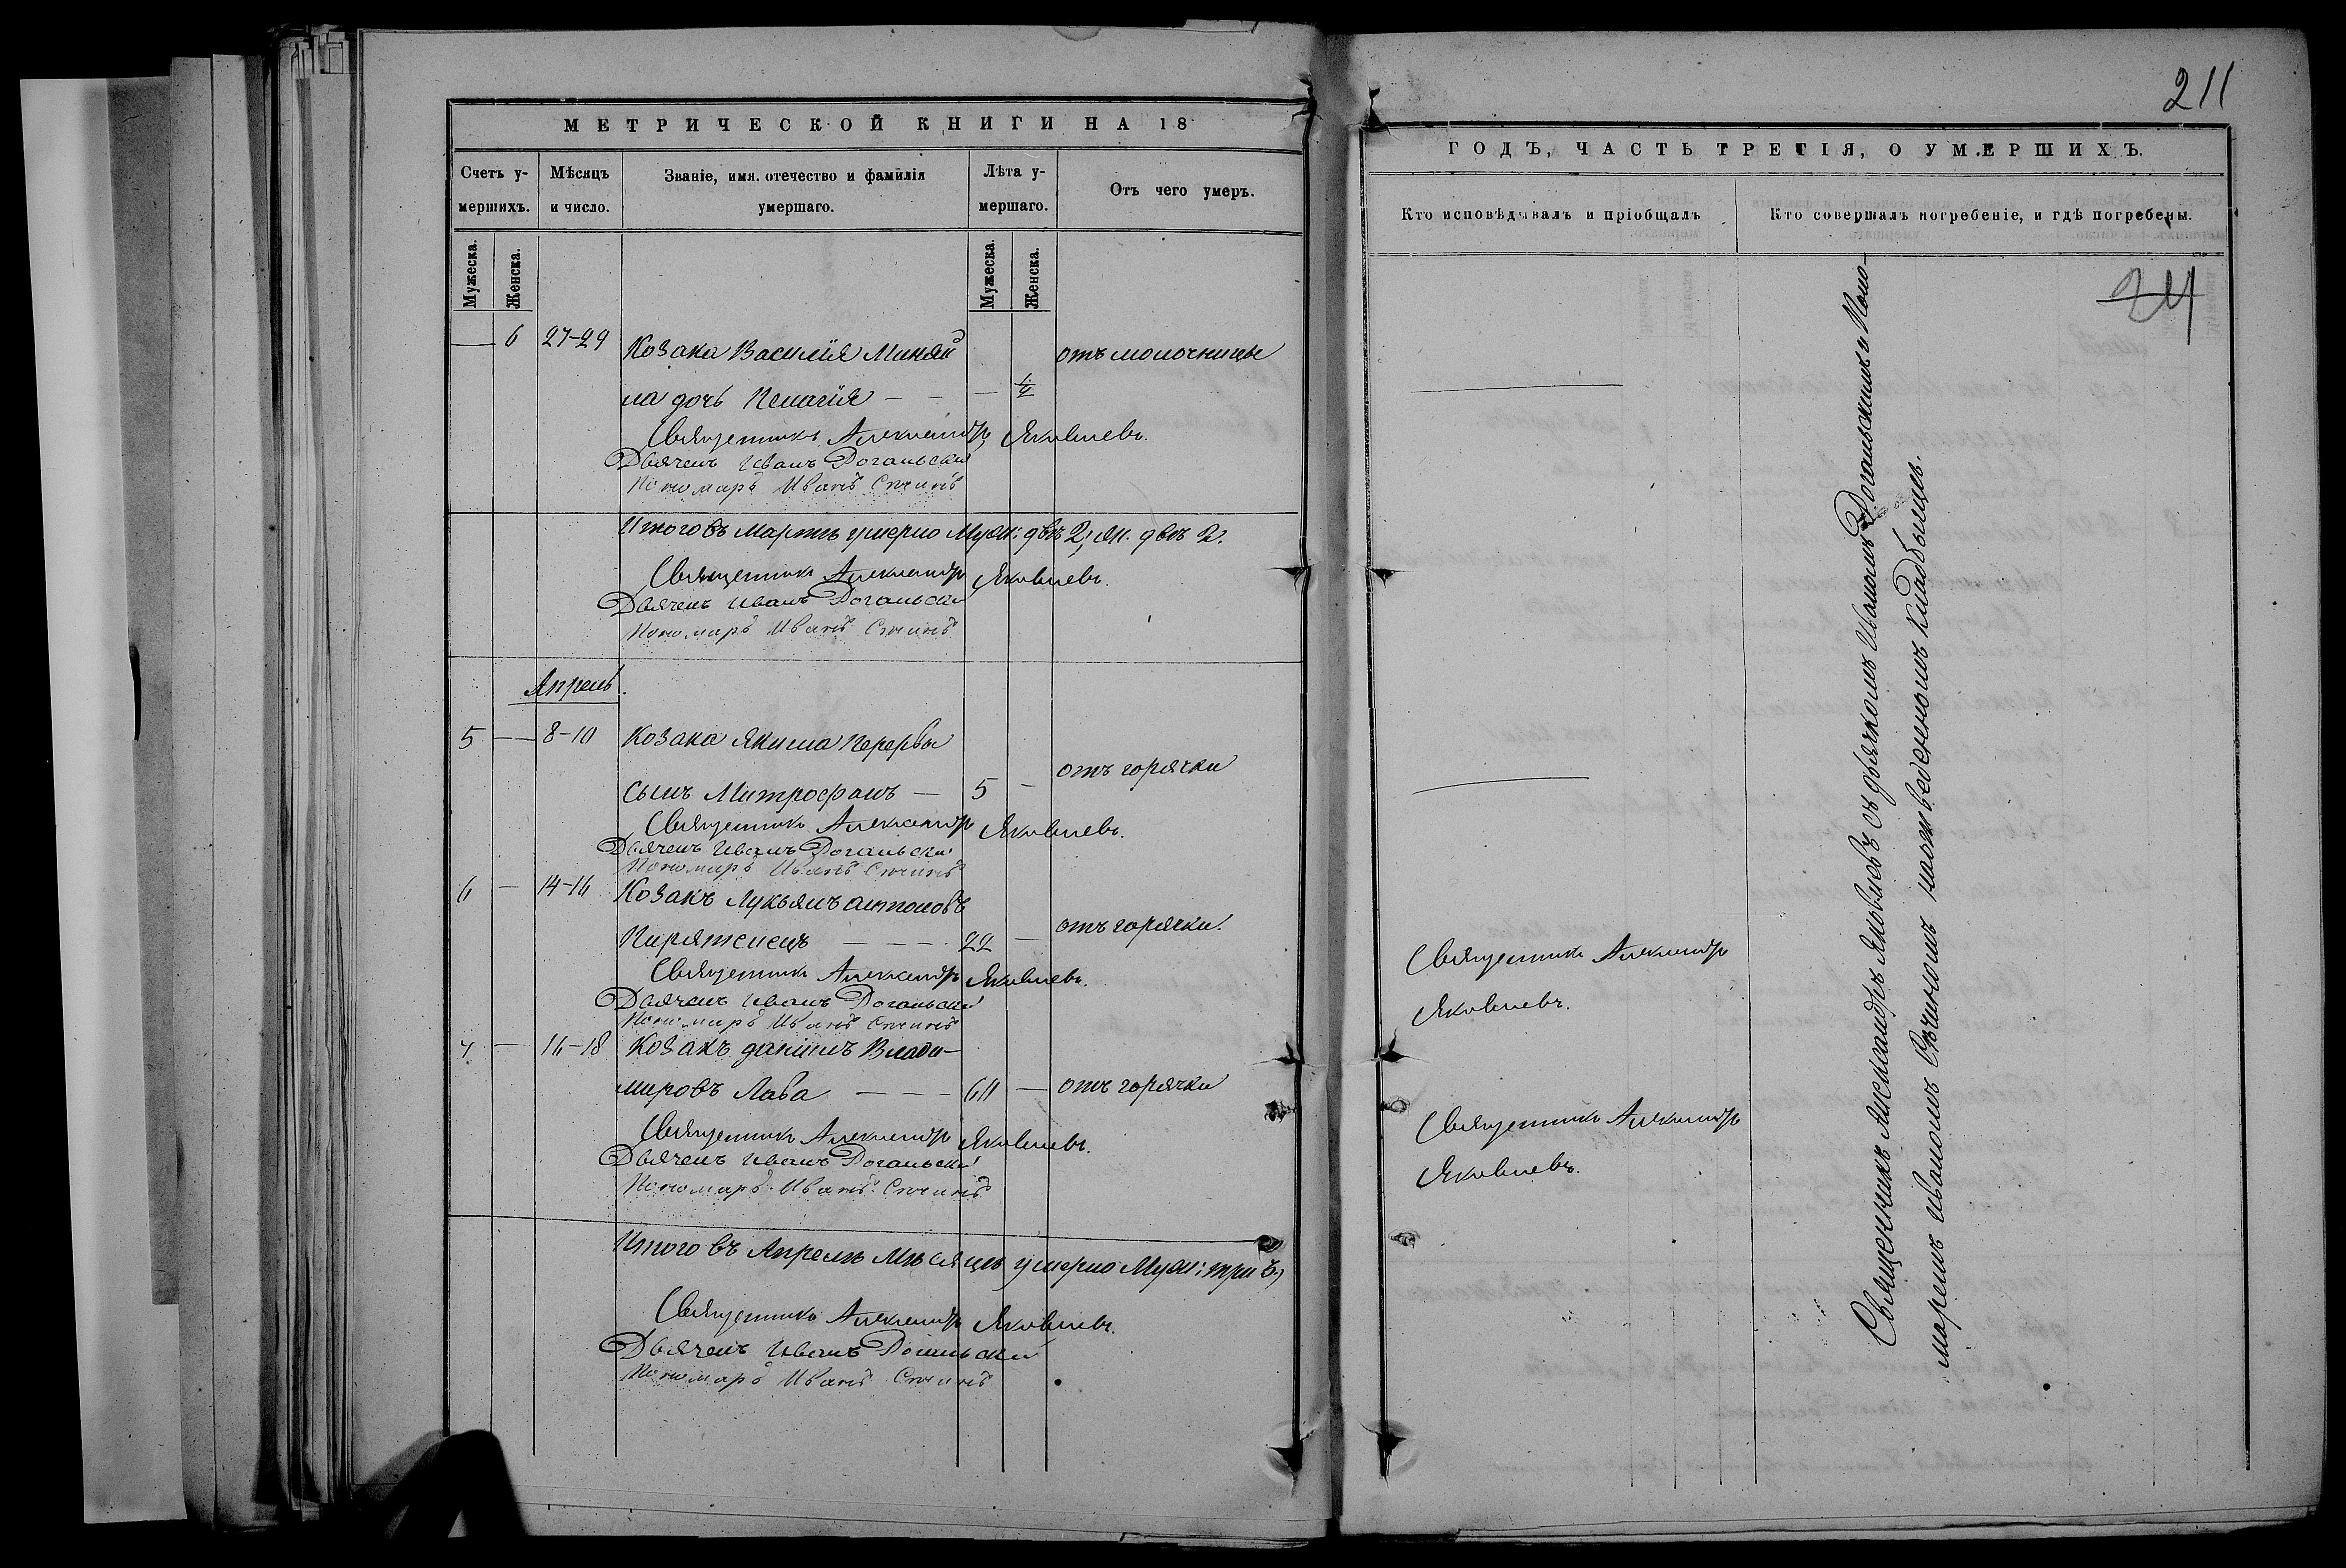 МЕТРИЧЕСКОЙ КНИГИ НА 18
Счетъ у-
мершихъ.
Мѣсяцъ
и число.
Званіе, имя, отечество и фамилія
умершаго.
Лѣта у-
мершаго.
Отъ чего умеръ.
Мужеска.
Женска.
Мужеска.
Женска.
— 6 27-29 Козака Василія Миняй
отъ молочницы
ла дочь Пелагія — — —
Священникъ Александръ Яковлевъ.
Дьячекъ Иванъ Догальскій
Пономарь Иванъ
Итого въ Мартѣ умерло Муж: двѣ 2, ж. двѣ 2.
Священникъ Александръ Яковлевъ.
Дьячекъ Иванъ Догальскій
Пономарь Иванъ
Апрель.
5 — 8-10 Козака Якима Перервы
отъ горячки
сынъ Митрофанъ — 5 —
Священникъ Александръ Яковлевъ.
Дьячекъ Иванъ Догальскій
Пономарь Иванъ
6 — 14-16 Козакъ Лукьянъ Антоновъ
отъ горячки.
Пиряженецъ — — — 22 —
Священникъ Александръ Яковлевъ.
Дьячекъ Иванъ Догальскій
Пономарь Иванъ
7 — 16-18 Козакъ Даніилъ Влади-
мировъ Лава — — — — отъ горячки
Священникъ Александръ Яковлевъ.
Дьячекъ Иванъ Догальскій
Пономарь Иванъ
Итого въ Апрелѣ Мѣсяцѣ умерло Муж: три 3,
Священникъ Александръ Яковлевъ.
Дьячекъ Иванъ Догальскій
Пономарь Иванъ
211
ГОДЪ, ЧАСТЬ ТРЕТІЯ, О УМЕРШИХЪ.
Кто исповѣдывалъ и пріобщалъ
Кто совершалъ погребеніе, и гдѣ погребены.
Священникъ Александръ
Яковлевъ.
Священникъ Александръ
Яковлевъ.
Священникъ Александръ Яковлевъ съ дьячкомъ Иваномъ Догальскимъ и Поно-
маремъ Иваномъ на отведенномъ кладбищѣ.